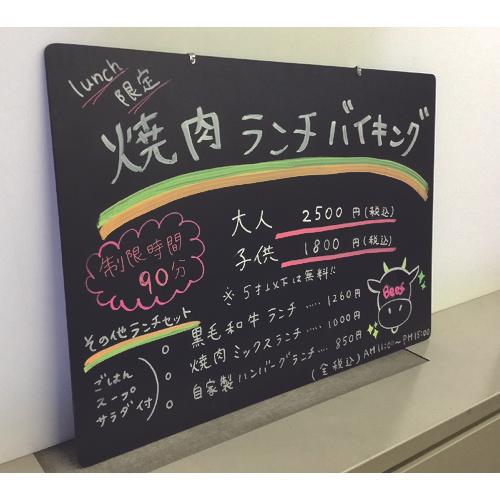 lunch
限定
焼肉ランチバイキング
大人 2500円(税込)
子供 1800円(税込)
※5才以下は無料!!
制限時間
90分
その他ランチセット
ごはん
スープ
サラダ付
○黒毛和牛ランチ ..... 1260円
○焼肉ミックスランチ .... 1000円
○自家製ハンバーグランチ ... 850円
(全税込)
Beef
AM11:00~PM15:00